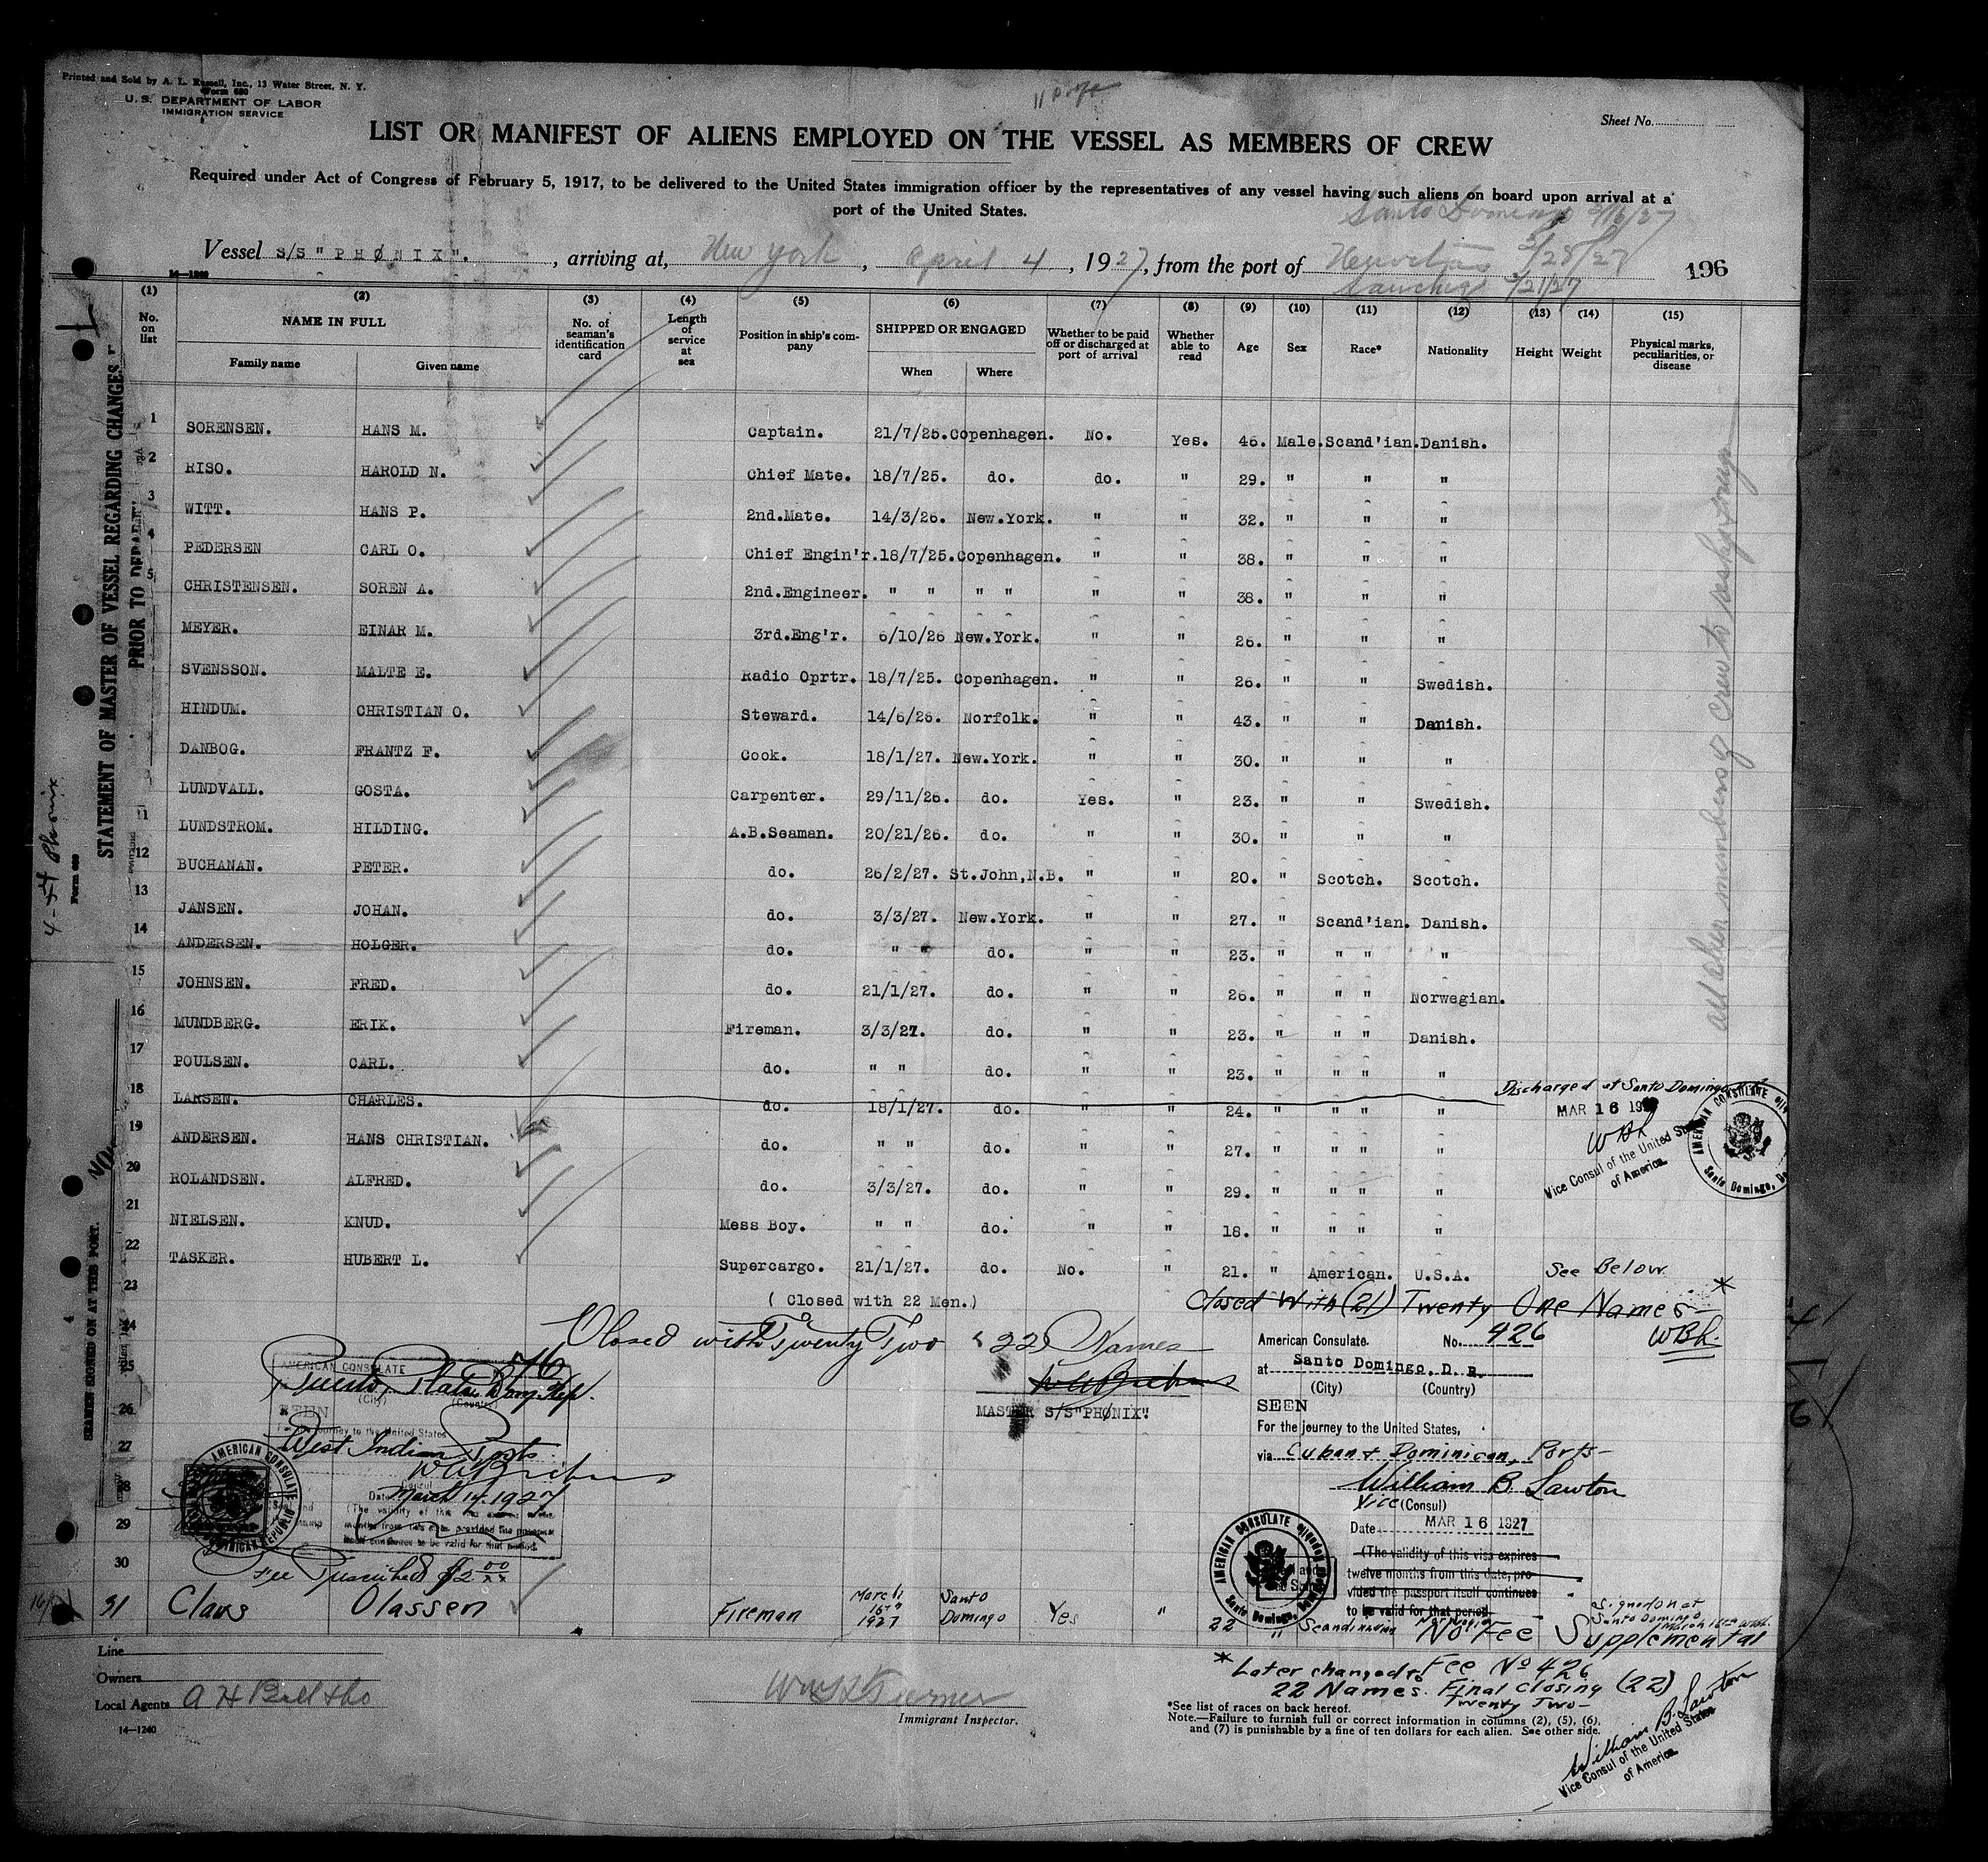 Printed and Sold by A. L. Russell, Inc., 13 Water Street, N. Y.
Form 680
U. S. DEPARTMENT OF LABOR
IMMIGRATION SERVICE
Sheet No.
LIST OR MANIFEST OF ALIENS EMPLOYED ON THE VESSEL AS MEMBERS OF CREW
Required under Act of Congress of February 5, 1917, to be delivered to the United States immigration officer by the representatives of any vessel having such aliens on board upon arrival at a
port of the United States.
Santo Domingo 3/16/27
Vessel S/S "PHØNIX". , arriving at, New York , April 4 , 1927, from the port of Nuevitas 3/28/27
Sanchez 3/21/27
196
14—1240
(1) (2) (3) (4) (5) (6) (7) (8) (9) (10) (11) (12) (13) (14) (15)
No. on list
NAME IN FULL
Family name Given name
No. of seaman's identification card
Length of service at sea
Position in ship's company
SHIPPED OR ENGAGED
When Where
Whether to be paid off or discharged at port of arrival
Whether able to read
Age Sex Race* Nationality Height Weight
Physical marks, peculiarities, or disease
1 SORENSEN. HANS M. Captain. 21/7/25. Copenhagen. No. Yes. 46. Male. Scand'ian. Danish.
2 RISO. HAROLD N. Chief Mate. 18/7/25. do. do. " 29. " " "
3 WITT. HANS P. 2nd.Mate. 14/3/26. New.York. " " 32. " " "
4 PEDERSEN CARL O. Chief Engin'r. 18/7/25. Copenhagen. " " 38. " " "
5 CHRISTENSEN. SOREN A. 2nd.Engineer. " " " " " " 38. " " "
MEYER. EINAR M. 3rd.Eng'r. 6/10/26 New.York. " " 26. " " "
SVENSSON. MALTE E. Radio Oprtr. 18/7/25. Copenhagen. " " 26. " " Swedish.
HINDUM. CHRISTIAN O. Steward. 14/6/26. Norfolk. " " 43. " " Danish.
DANBOG. FRANTZ F. Cook. 18/1/27. New.York. " " 30. " " "
LUNDVALL. GOSTA. Carpenter. 29/11/26. do. Yes. " 23. " " Swedish.
11 LUNDSTROM. HILDING. A.B.Seaman. 20/21/26. do. " " 30. " " "
12 BUCHANAN. PETER. do. 26/2/27. St.John,N.B. " " 20. " Scotch. Scotch.
13 JANSEN. JOHAN. do. 3/3/27. New.York. " " 27. " Scand'ian. Danish.
14 ANDERSEN. HOLGER. do. " " do. " " 23. " " " "
15 JOHNSEN. FRED. do. 21/1/27. do. " " 26. " " " Norwegian.
16 MUNDBERG. ERIK. Fireman. 3/3/27. do. " " 23. " " " Danish.
17 POULSEN. CARL. do. " " do. " " 23. " " " "
18 LARSEN. CHARLES. do. 18/1/27. do. " " 24. " " " "
Discharged at Santo Domingo
MAR 16
WBL
Vice Consul of the United States
of America.
AMERICAN CONSULATE
Santo Domingo,
19 ANDERSEN. HANS CHRISTIAN. do. " " do. " " 27. " " " "
20 ROLANDSEN. ALFRED. do. 3/3/27. do. " " 29. " " " "
21 NIELSEN. KNUD. Mess Boy. " " do. " " 18. " " " "
22 TASKER. HUBERT L. Supercargo. 21/1/27. do. No. " 21. " American. U.S.A. See Below
23 ( Closed with 22 Men.) Closed With (21) Twenty One Names— *
WBL.
24 Closed with Twenty Two (22) Names
25
MASTER S/S"PHØNIX".
26
27
28
29
30
AMERICAN CONSULATE
Puerto Plata Dom. Rep.
(City) (Country)
SEEN
For the journey to the United States
West Indian Ports
Date March 14. 1927
Fee Prescribed $2.00
AMERICAN CONSULATE
American Consulate. No. 426
at Santo Domingo, D. R.
(City) (Country)
SEEN
For the journey to the United States,
via Cuban & Dominican, Ports—
William B. Lawton
Vice (Consul)
Date MAR 16 1927
(The validity of this visa expires
twelve months from this date, provided the passport itself continues
to be valid for that period.
AMERICAN CONSULATE
Santo Domingo,
31 Claus Olassen Fireman March 16th 1927 Santo Domingo Yes " 22 " Scandinavian Norwegian No Fee
Signed on at
Santo Domingo
Supplemental
* Later changed to Fee No 426
22 Names. Final Closing (22)
Twenty Two—
William B. Lawton
Vice Consul of the United States
of America.
Line
Owners
Local Agents A H Bull & Co
14—1240
Immigrant Inspector.
*See list of races on back hereof.
Note.—Failure to furnish full or correct information in columns (2), (5), (6),
and (7) is punishable by a fine of ten dollars for each alien. See other side.
all alien members of crew
STATEMENT OF MASTER OF VESSEL REGARDING CHANGES
PRIOR TO
SEAMEN SIGNED ON AT THIS PORT.
4-54 Phonix
Form 689